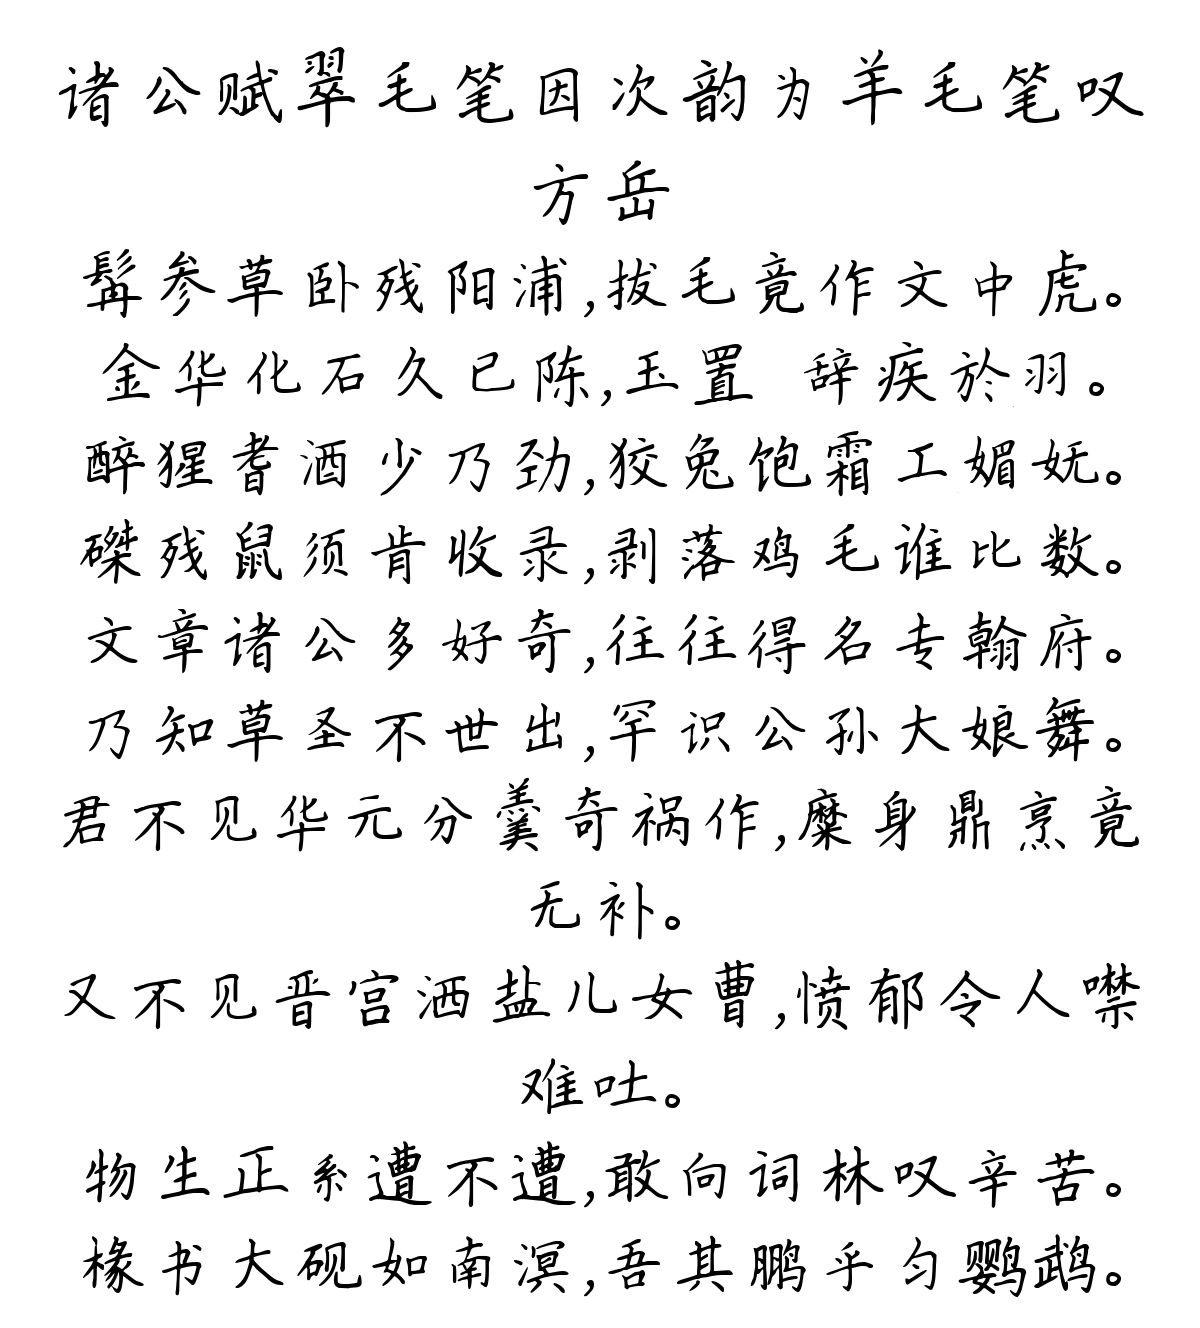 诸公赋翠毛笔因次韵为羊毛笔叹
方岳
髯参草卧残阳浦,拔毛竟作文中虎。
金华化石久已陈,玉置 辞疾於羽。
醉猩耆酒少乃劲,狡兔饱霜工媚妩。
磔残鼠须肯收录,剥落鸡毛谁比数。
文章诸公多好奇,往往得名专翰府。
乃知草圣不世出,罕识公孙大娘舞。
君不见华元分羹奇祸作,糜身鼎烹竟
无补。
又不见晋宫洒盐儿女曹,愤郁令人噤
难吐。
物生正系遭不遭,敢向词林叹辛苦。
椽书大砚如南溟,吾其鹏乎匀鹦鹉。